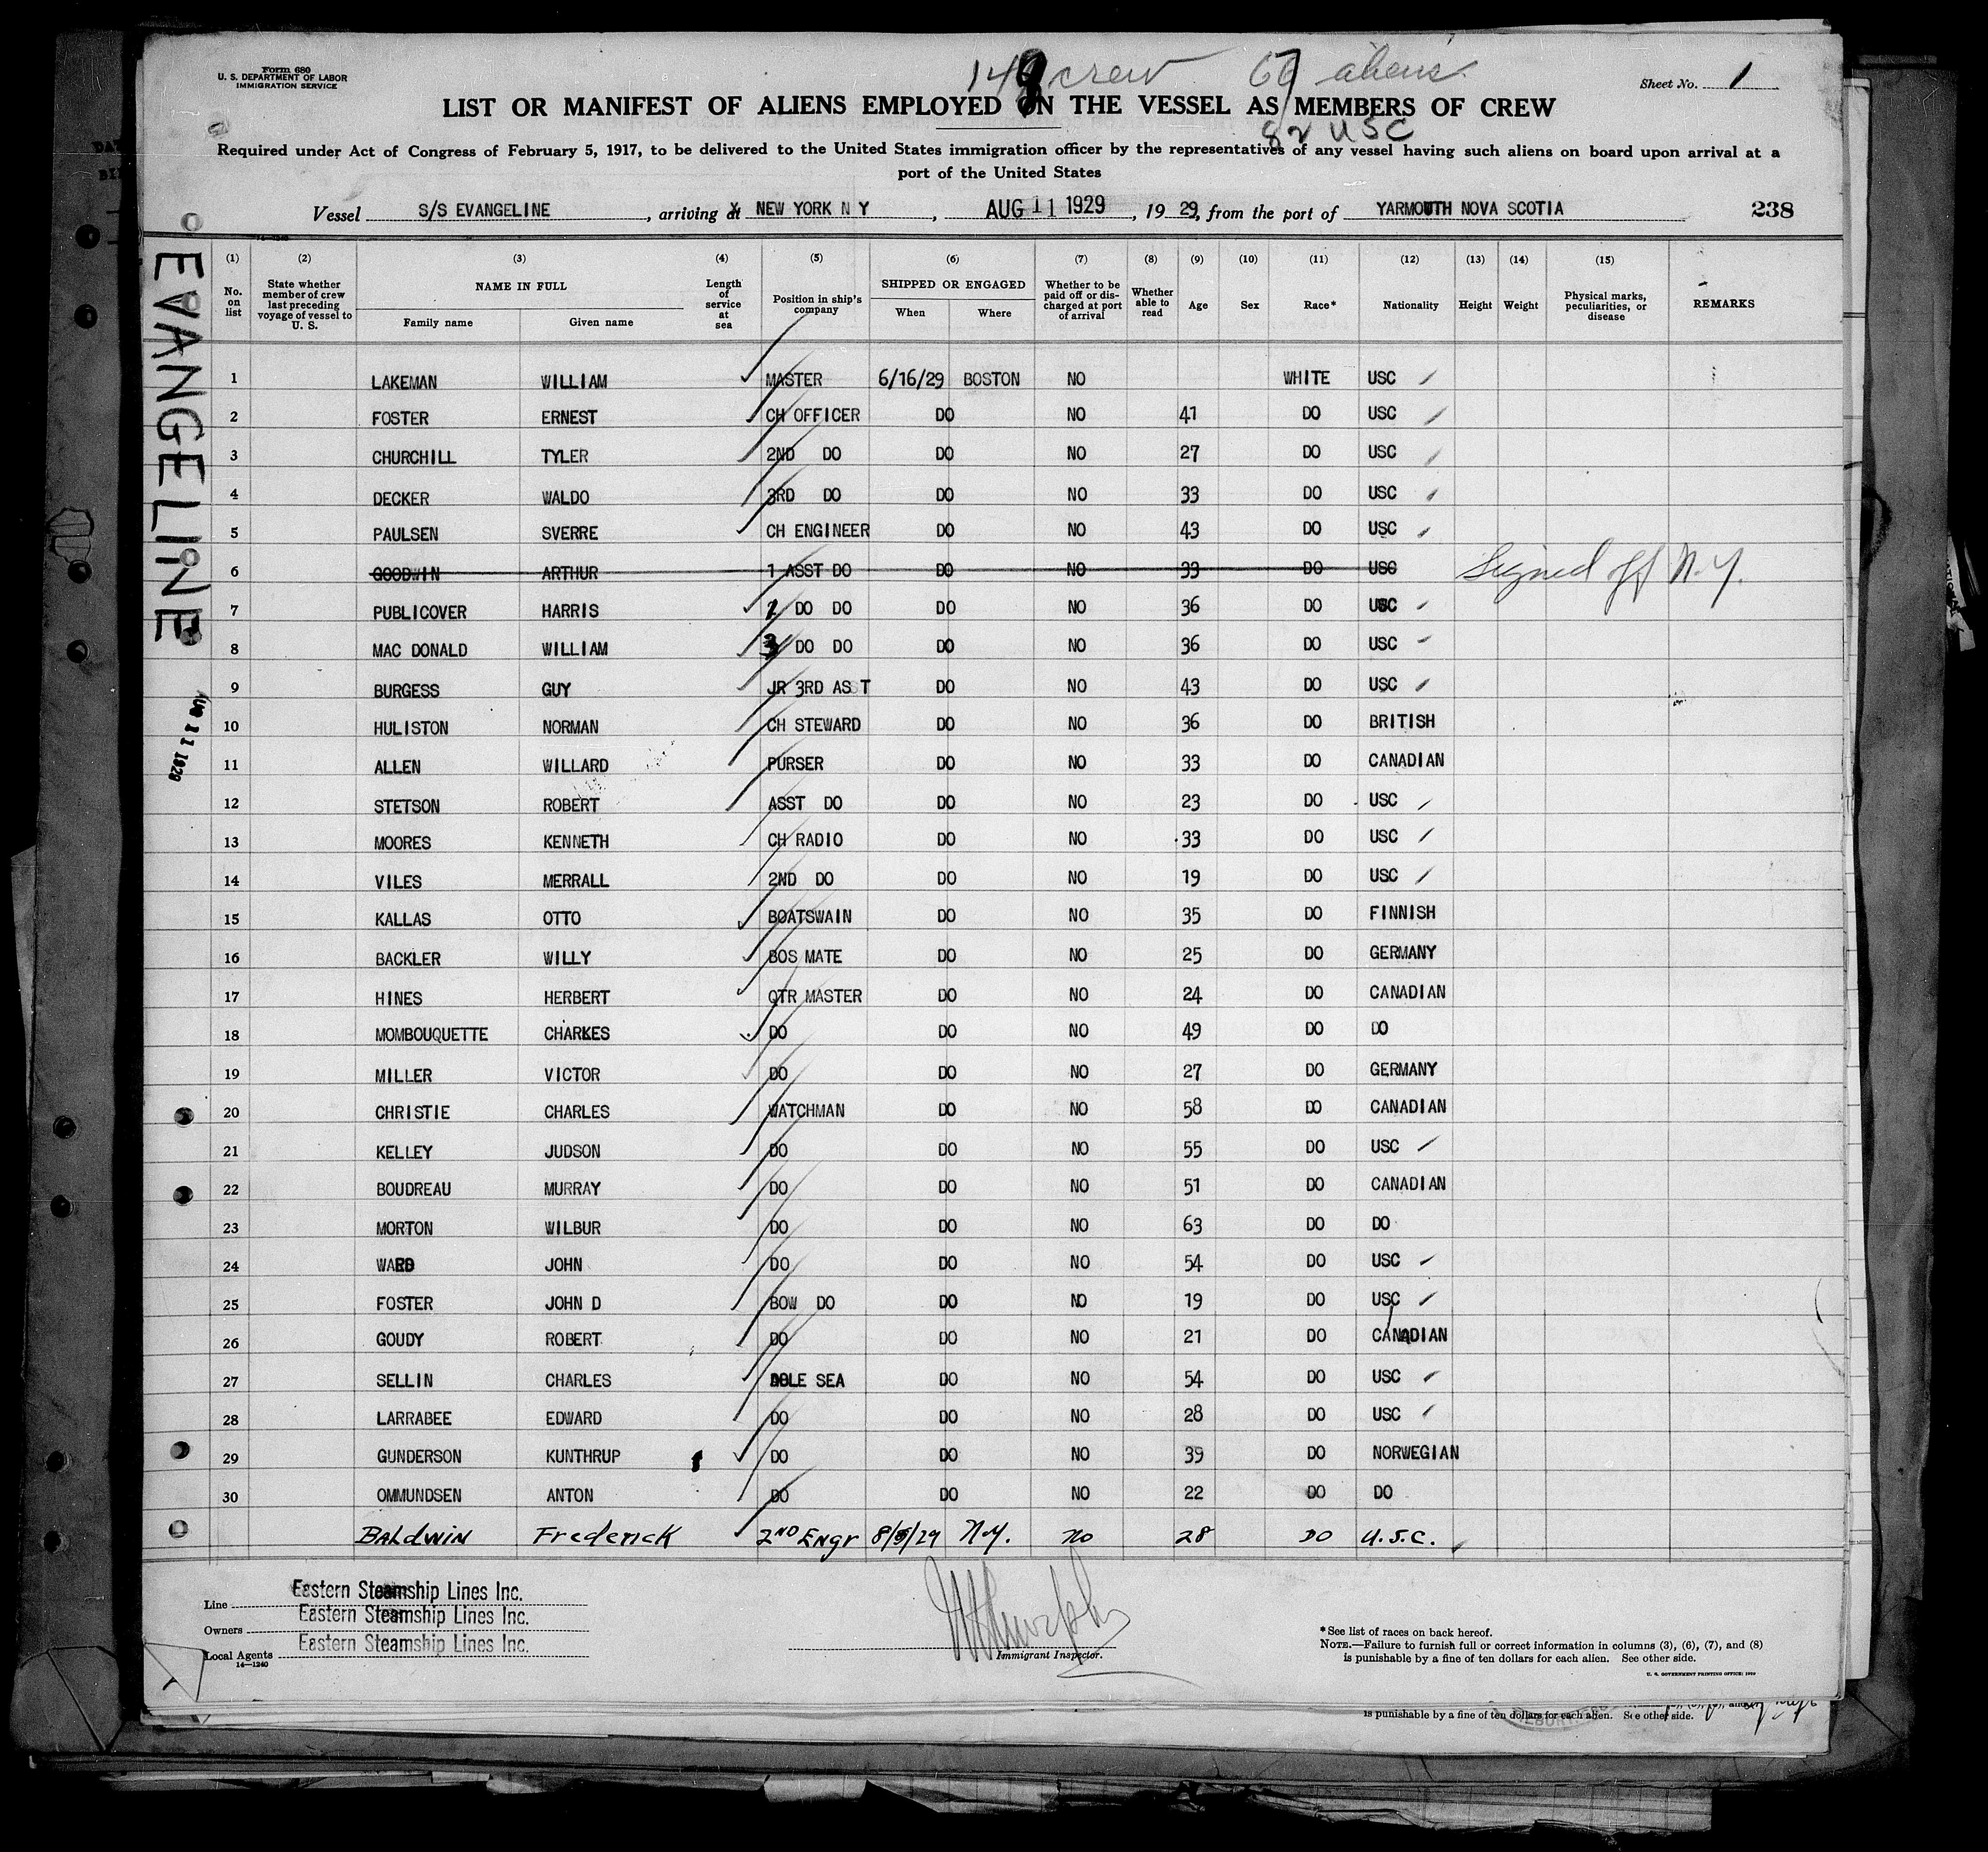 Form 680
U. S. DEPARTMENT OF LABOR
IMMIGRATION SERVICE
148 crew 67 aliens
Sheet No. 1
LIST OR MANIFEST OF ALIENS EMPLOYED ON THE VESSEL AS MEMBERS OF CREW
82 USC
Required under Act of Congress of February 5, 1917, to be delivered to the United States immigration officer by the representatives of any vessel having such aliens on board upon arrival at a
port of the United States
Vessel S/S EVANGELINE, arriving at NEW YORK N Y, AUG 11 1929, 19 29, from the port of YARMOUTH NOVA SCOTIA 238
EVANGELINE
AUG 11 1929
(1) (2) (3) (4) (5) (6) (7) (8) (9) (10) (11) (12) (13) (14) (15)
No. on list State whether member of crew last preceding voyage of vessel to U. S. NAME IN FULL Family name Given name Length of service at sea Position in ship's company SHIPPED OR ENGAGED When Where Whether to be paid off or discharged at port of arrival Whether able to read Age Sex Race* Nationality Height Weight Physical marks, peculiarities, or disease REMARKS
1 LAKEMAN WILLIAM MASTER 6/16/29 BOSTON NO WHITE USC
2 FOSTER ERNEST CH OFFICER DO NO 41 DO USC
3 CHURCHILL TYLER 2ND DO DO NO 27 DO USC
4 DECKER WALDO 3RD DO DO NO 33 DO USC
5 PAULSEN SVERRE CH ENGINEER DO NO 43 DO USC
6 GOODWIN ARTHUR 1 ASST DO DO NO 33 DO USC Signed off N.Y.
7 PUBLICOVER HARRIS 1 DO DO DO NO 36 DO USC
8 MAC DONALD WILLIAM 3 DO DO DO NO 36 DO USC
9 BURGESS GUY JR 3RD ASST DO NO 43 DO USC
10 HULISTON NORMAN CH STEWARD DO NO 36 DO BRITISH
11 ALLEN WILLARD PURSER DO NO 33 DO CANADIAN
12 STETSON ROBERT ASST DO DO NO 23 DO USC
13 MOORES KENNETH CH RADIO DO NO 33 DO USC
14 VILES MERRALL 2ND DO DO NO 19 DO USC
15 KALLAS OTTO BOATSWAIN DO NO 35 DO FINNISH
16 BACKLER WILLY BOS MATE DO NO 25 DO GERMANY
17 HINES HERBERT QTR MASTER DO NO 24 DO CANADIAN
18 MOMBOUQUETTE CHARKES DO DO NO 49 DO DO
19 MILLER VICTOR DO DO NO 27 DO GERMANY
20 CHRISTIE CHARLES WATCHMAN DO NO 58 DO CANADIAN
21 KELLEY JUDSON DO DO NO 55 DO USC
22 BOUDREAU MURRAY DO DO NO 51 DO CANADIAN
23 MORTON WILBUR DO DO NO 63 DO DO
24 WARD JOHN DO DO NO 54 DO USC
25 FOSTER JOHN D BOW DO DO NO 19 DO USC
26 GOUDY ROBERT DO DO NO 21 DO CANADIAN
27 SELLIN CHARLES ABLE SEA DO NO 54 DO USC
28 LARRABEE EDWARD DO DO NO 28 DO USC
29 GUNDERSON KUNTHRUP DO DO NO 39 DO NORWEGIAN
30 OMMUNDSEN ANTON DO DO NO 22 DO DO
BALDWIN Frederick 2ND Engr 8/5/29 N.Y. no 28 DO U.S.C.
Line Eastern Steamship Lines Inc.
Owners Eastern Steamship Lines Inc.
Local Agents Eastern Steamship Lines Inc.
14—1240
Immigrant Inspector.
*See list of races on back hereof.
NOTE.—Failure to furnish full or correct information in columns (3), (6), (7), and (8)
is punishable by a fine of ten dollars for each alien. See other side.
U. S. GOVERNMENT PRINTING OFFICE: 1929
is punishable by a fine of ten dollars for each alien. See other side.